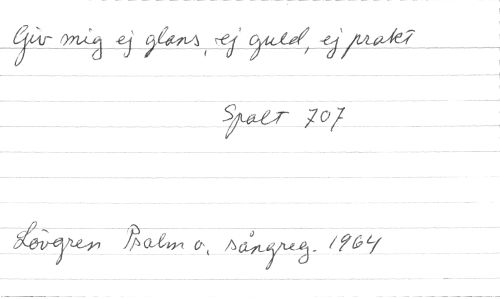 Giv mig ej glans, ej guld, ej prakt
Spalt 707
Lövgren Psalm o. sångreg. 1964